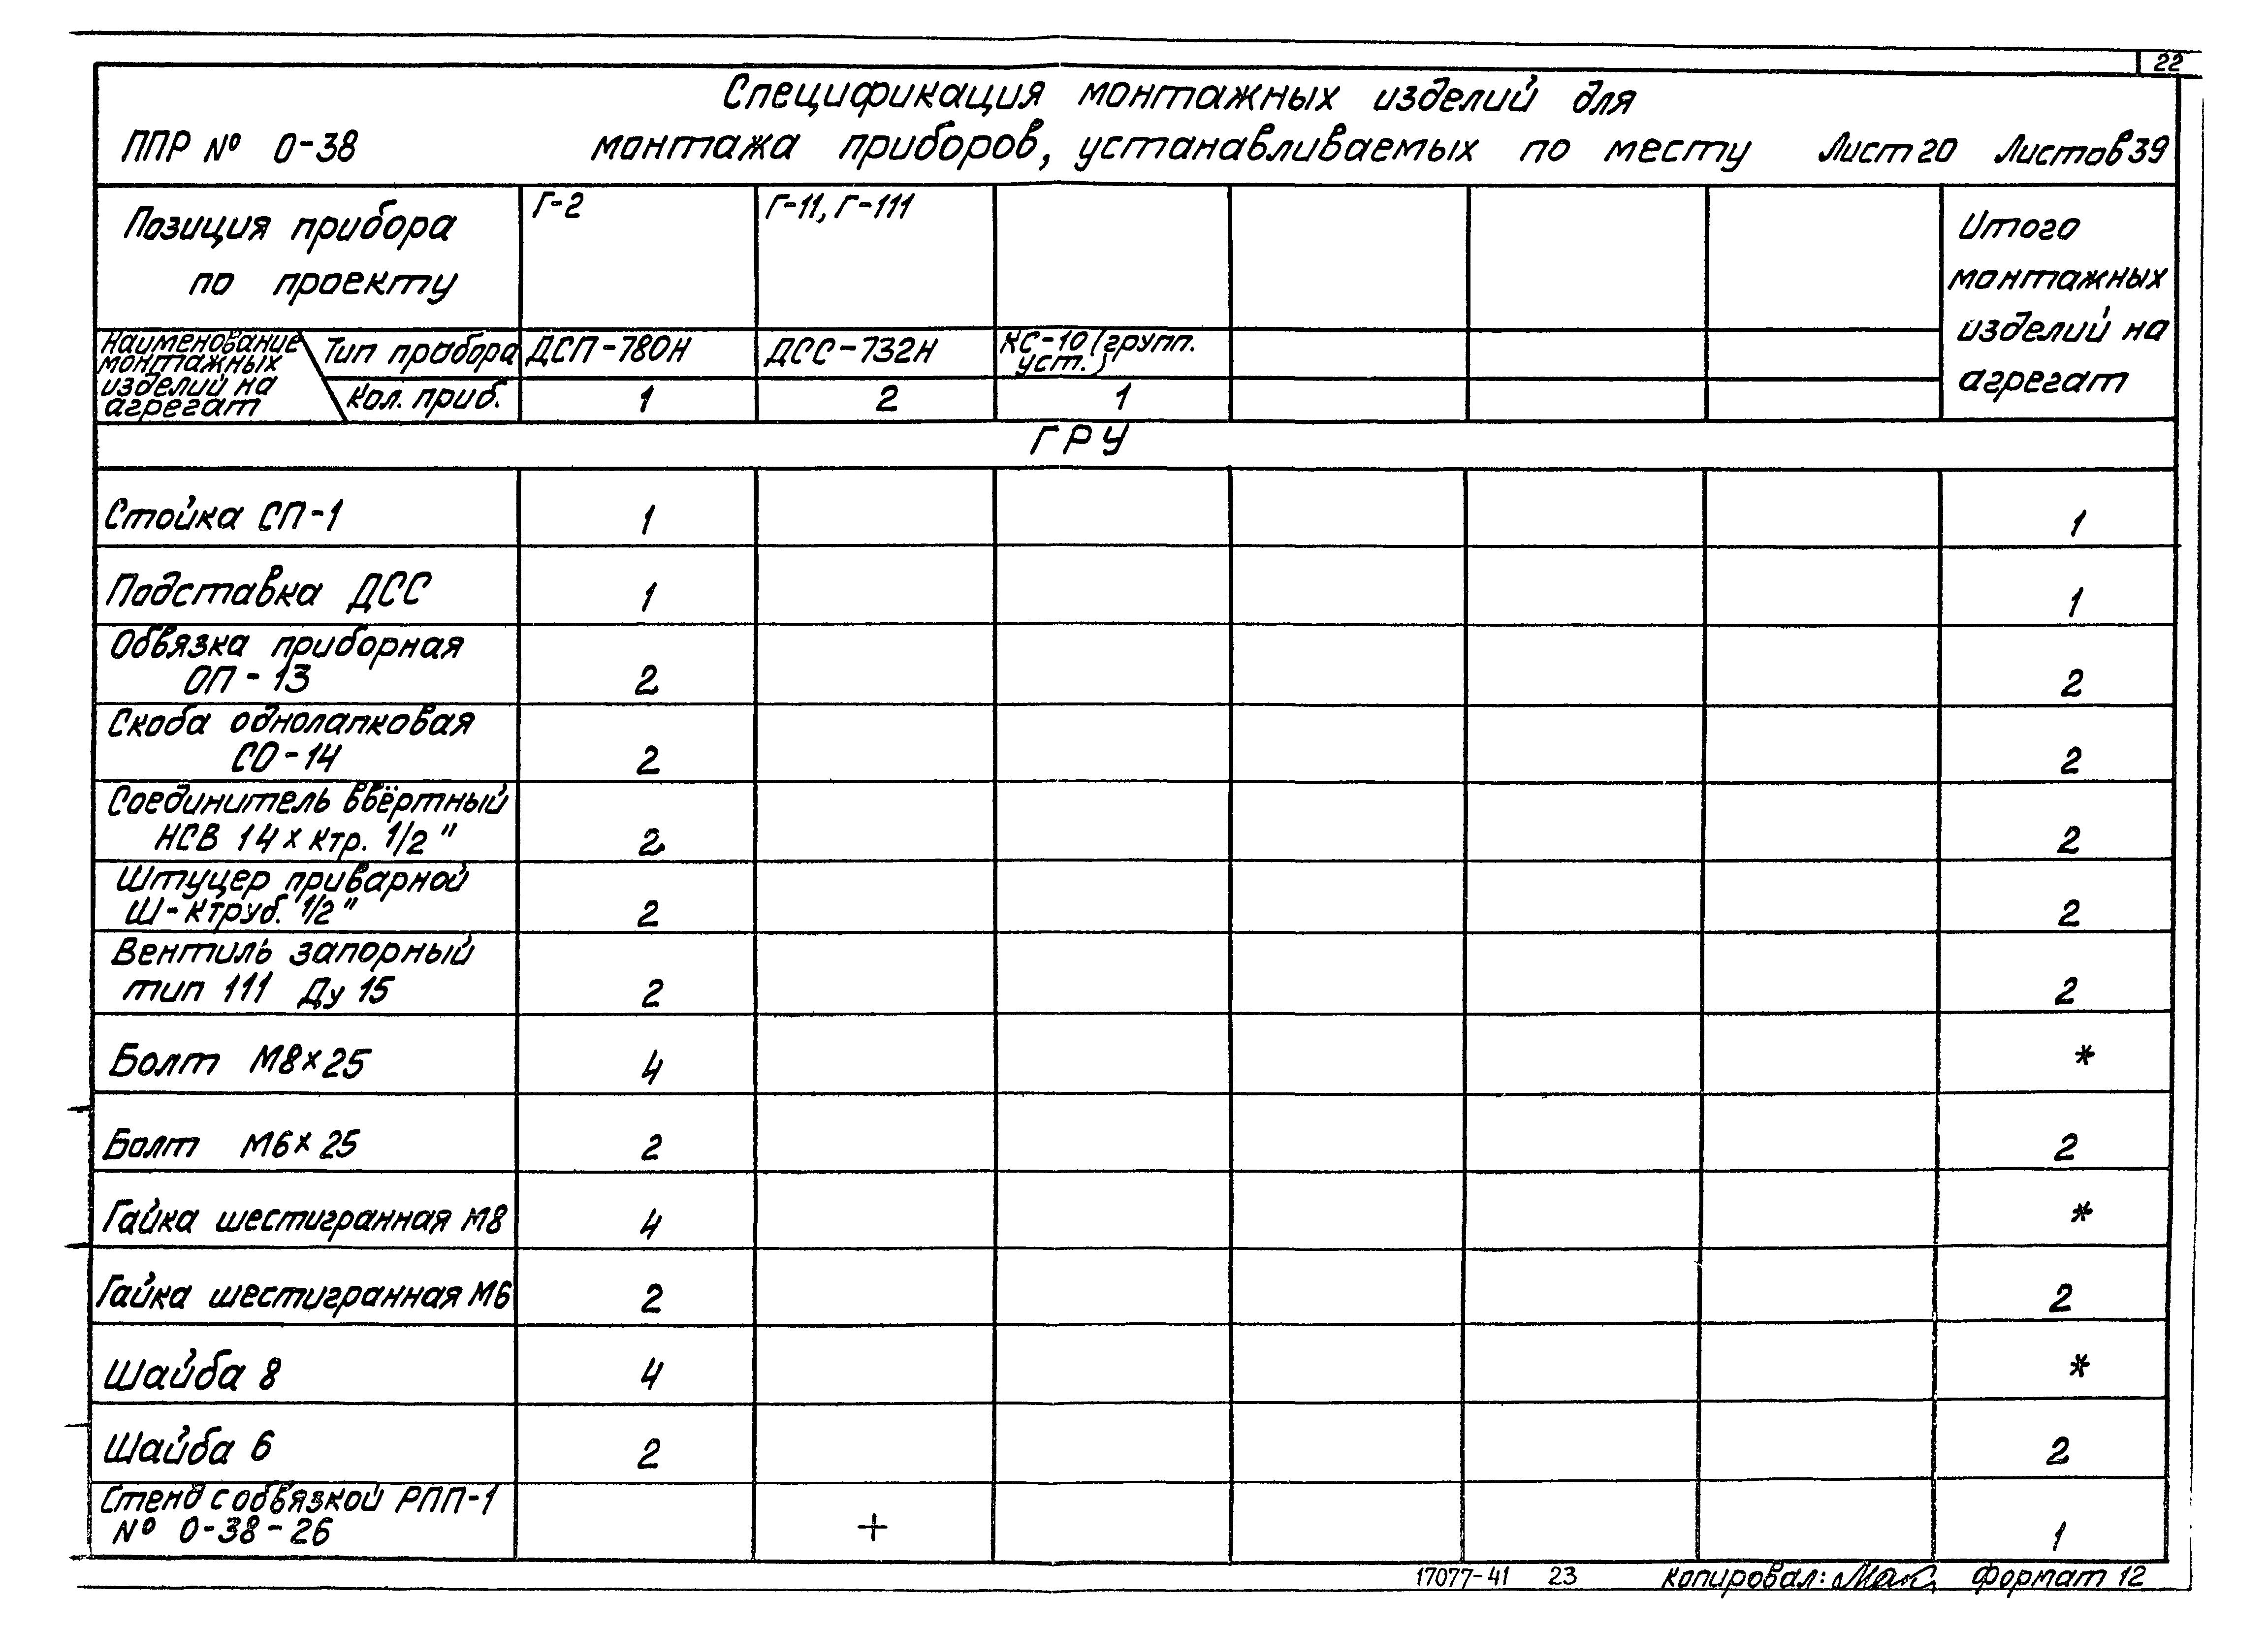 22
Спецификация монтажных изделий для
ППР № 0-38 монтажа приборов, устанавливаемых по месту Лист 20 Листов 39
Позиция прибора
по проекту
Г-2
Г-11, Г-111
Итого
монтажных
изделий на
агрегат
Наименование
монтажных
изделий на
агрегат
Тип прибора
ДСП-780Н
ДСС-732Н
КС-10 (групп.
уст.)
Кол. приб.
1
2
1
ГРУ
Стойка СП-1 1 1
Подставка ДСС 1 1
Обвязка приборная
ОП-13 2 2
Скоба однолапковая
СО-14 2 2
Соединитель ввёртный
НСВ 14х ктр. 1/2" 2 2
Штуцер приварной
Ш-Ктруб. 1/2" 2 2
Вентиль запорный
тип 111 Ду 15 2 2
Болт М8х25 4 *
Болт М6х25 2 2
Гайка шестигранная М8 4 *
Гайка шестигранная М6 2 2
Шайба 8 4 *
Шайба 6 2 2
Стенд с обвязкой РПП-1
№ 0-38-26 + 1
17077-41 23 Копировал: Формат 12